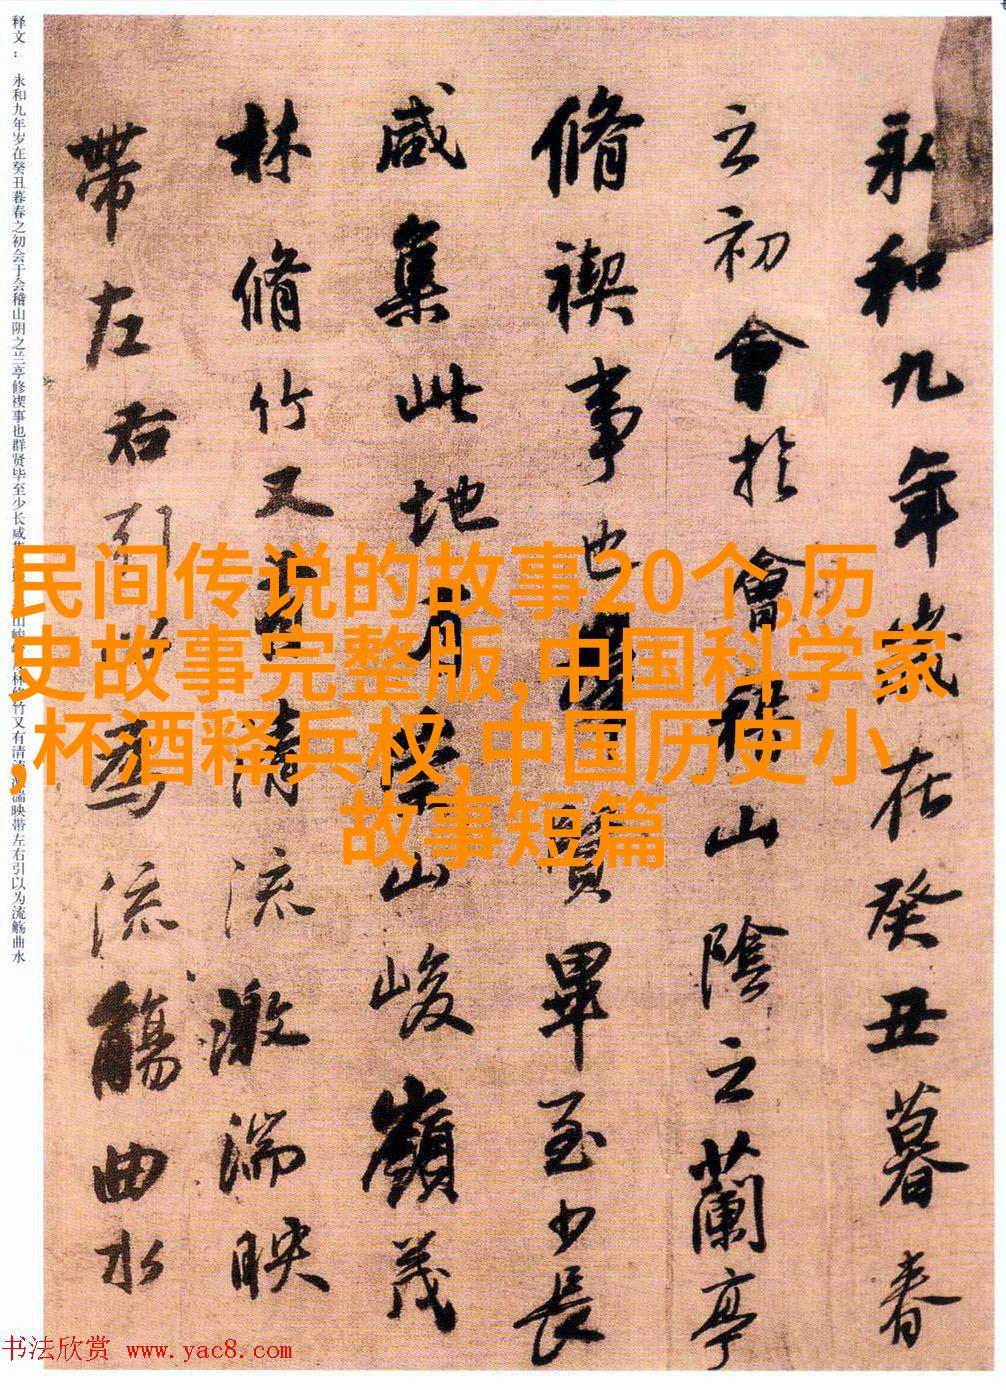 永和九年歲在癸丑暮春
之初會於會稽山陰之蘭亭
脩禊事也羣賢畢至少長
咸集此地有崇山峻嶺茂
林脩竹又有清流激湍映
帶左右引以為流觴曲水
释文： 永和九年岁在癸丑暮春之初会于会稽山阴之兰亭修禊事也群贤毕至少长咸集 山峻 林修竹又有清流 湍映带左右引以为流觞曲水
民间传说的故事20个,历
史故事完整版,中国科学家
,杯酒释兵权,中国历史小
故事短篇
书法欣赏 www.yac8.com